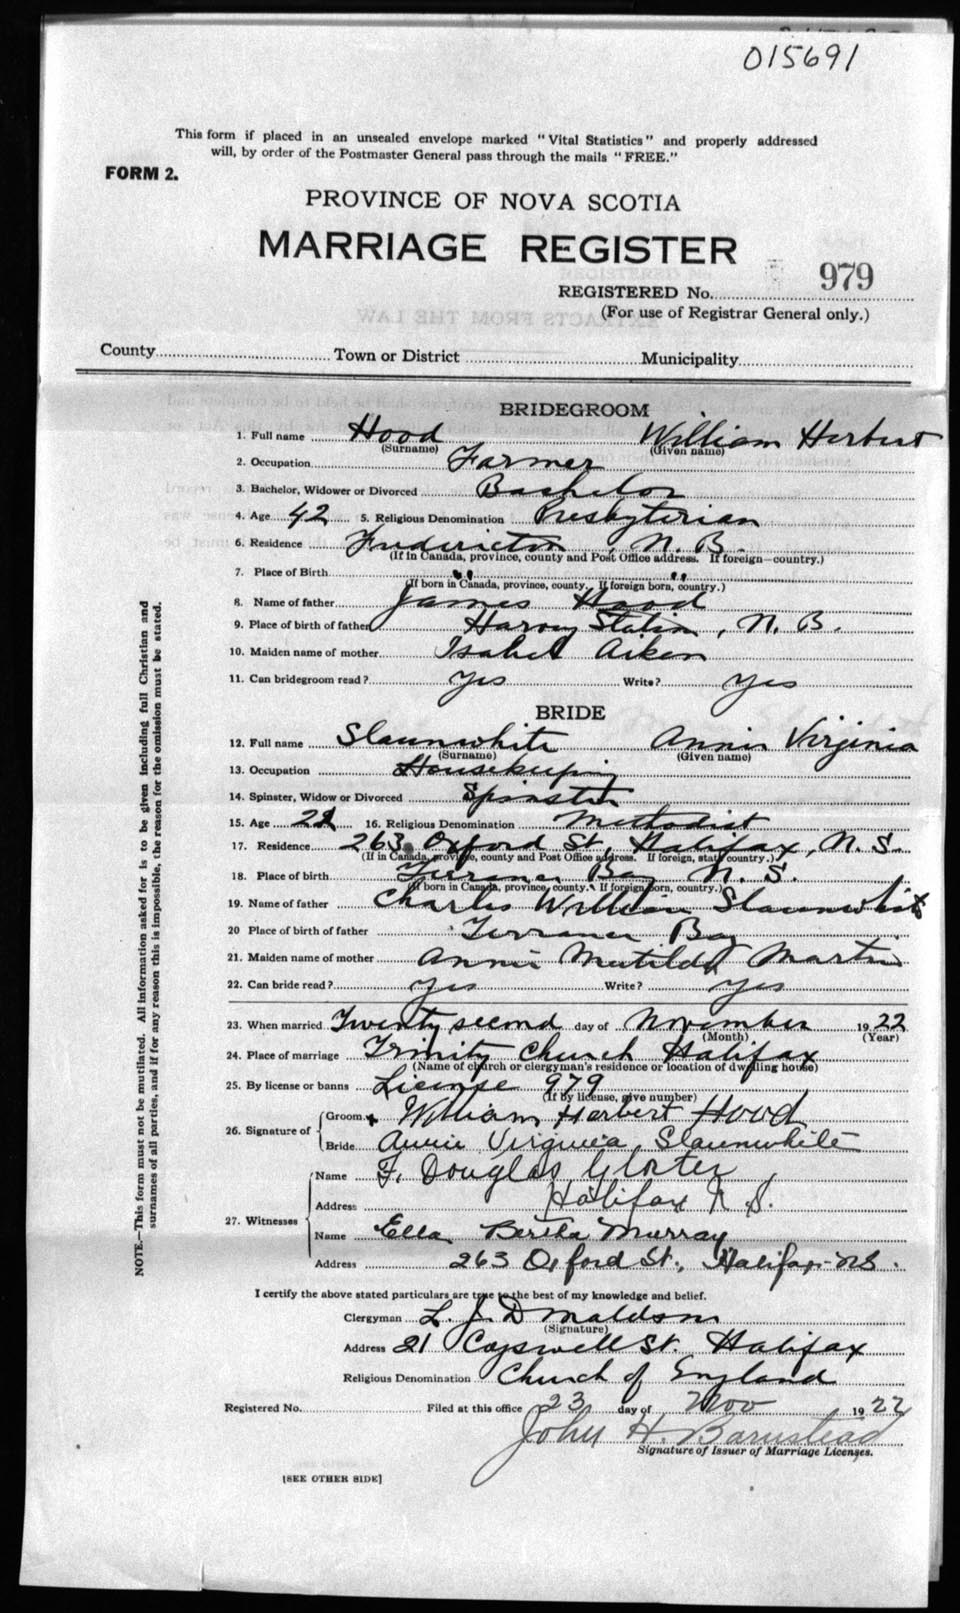 015691
This form if placed in an unsealed envelope marked "Vital Statistics" and properly addressed
will, by order of the Postmaster General pass through the mails "FREE."
FORM 2.
PROVINCE OF NOVA SCOTIA
MARRIAGE REGISTER
979
REGISTERED No.
(For use of Registrar General only.)
County Town or District Municipality
BRIDEGROOM
1. Full name Hood William Herbert
(Surname) (Given name)
2. Occupation Farmer
3. Bachelor, Widower or Divorced Bachelor
4. Age 42 5. Religious Denomination Presbyterian
6. Residence Fredericton, N. B.
(If in Canada, province, county and Post Office address. If foreign—country.)
7. Place of Birth " "
(If born in Canada, province, county. If foreign born, country.)
8. Name of father James Hood
9. Place of birth of father Harvey Station, N. B.
10. Maiden name of mother Isabel Aiken
11. Can bridegroom read? yes Write? yes
BRIDE
12. Full name Slaunwhite Annie Virginia
(Surname) (Given name)
13. Occupation Housekeeping
14. Spinster, Widow or Divorced Spinster
15. Age 16. Religious Denomination Methodist
17. Residence 263 Oxford St, Halifax, N. S.
(If in Canada, province, county and Post Office address. If foreign, state country.)
18. Place of birth Terrance Bay N. S.
(If born in Canada, province, county. If foreign born, country.)
19. Name of father Charles William Slaunwhite
20 Place of birth of father Terrance Bay
21. Maiden name of mother Annie Matilda Martin
22. Can bride read? yes Write? yes
23. When married Twenty second day of November 1922
(Month) (Year)
24. Place of marriage Trinity Church Halifax
(Name of church or clergyman's residence or location of dwelling house)
25. By license or banns License 979
(If by license, give number)
26. Signature of Groom x William Herbert Hood
Bride Annie Virginia Slaunwhite
27. Witnesses Name F. Douglas Gloster
Address Halifax N. S.
Name Ella Bertha Murray
Address 263 Oxford St., Halifax NS.
I certify the above stated particulars are true to the best of my knowledge and belief.
Clergyman L. J. Donaldson
(Signature)
Address 21 Cogswell St. Halifax
Religious Denomination Church of England
Registered No. Filed at this office 23 day of Nov 1922
John H. Barnstead
Signature of Issuer of Marriage Licenses.
[SEE OTHER SIDE]
NOTE.—This form must not be mutilated. All information asked for is to be given including full Christian and
surnames of all parties, and if for any reason this is impossible, the reason for the omission must be stated.